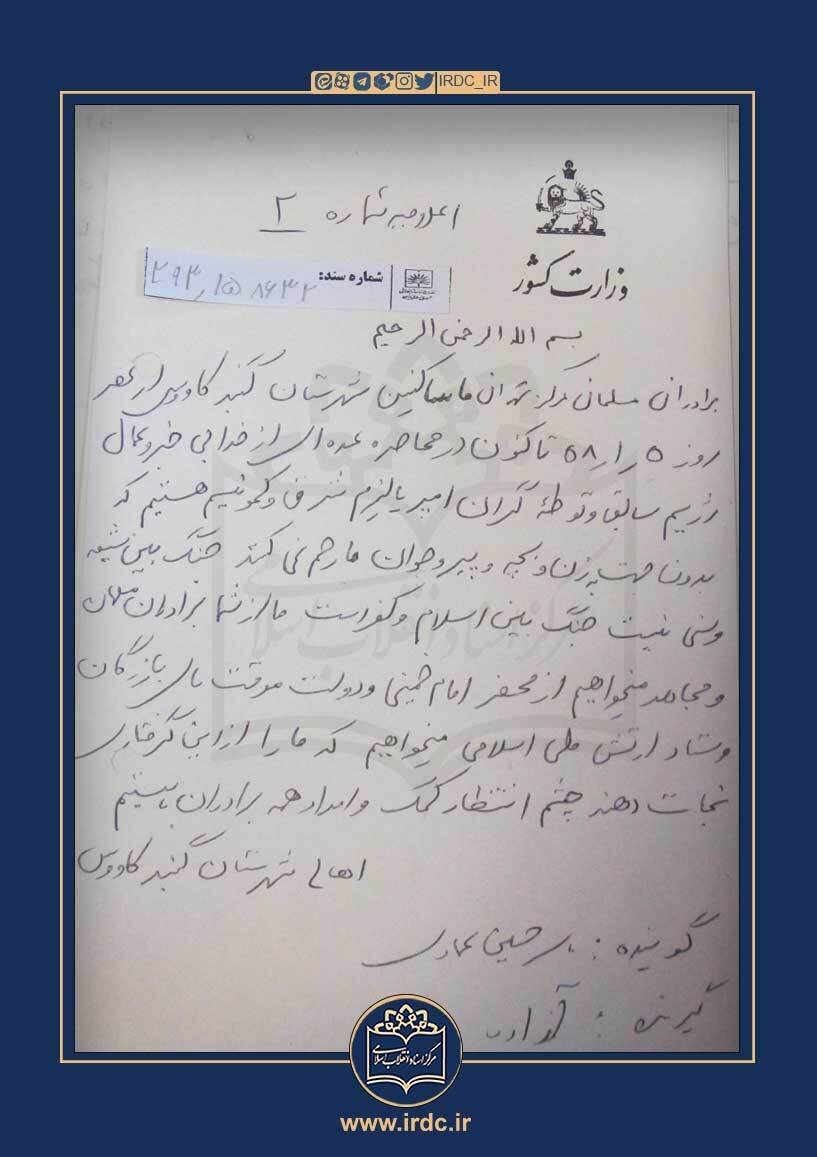 IRDC_IR
وزارت کشور
اعلامیه شماره ۲
شماره سند:
۲۹۳ر۱۵۸۶۳۲
بسم الله الرحمن الرحیم
برادران مسلمان مرکز تهران ما ساکنین شهرستان گنبد کاووس از عصر
روز ۵ر۱ر۵۸ تاکنون در محاصره عده‌ای از خدا بی خبر و عمال
رژیم سابق و توطئه گران امپریالیزم شرق و کمونیسم هستیم که
بدون به زن و بچه و پیر و جوان ما رحم نمی کنند جنگ بین شیعه
و سنی نیست جنگ بین اسلام و کفر است ما از شما برادران مسلمان
و مجاهد میخواهیم از محضر امام خمینی و دولت موقت بازرگان
و ستاد ارتش ملی اسلامی میخواهیم که ما را از این گرفتاری
نجات دهند چشم انتظار کمک و امداد همه برادران هستیم
اهالی شهرستان گنبد کاووس
گوینده : حسین عمادی
گیرنده :
مرکز اسناد انقلاب اسلامی
www.irdc.ir